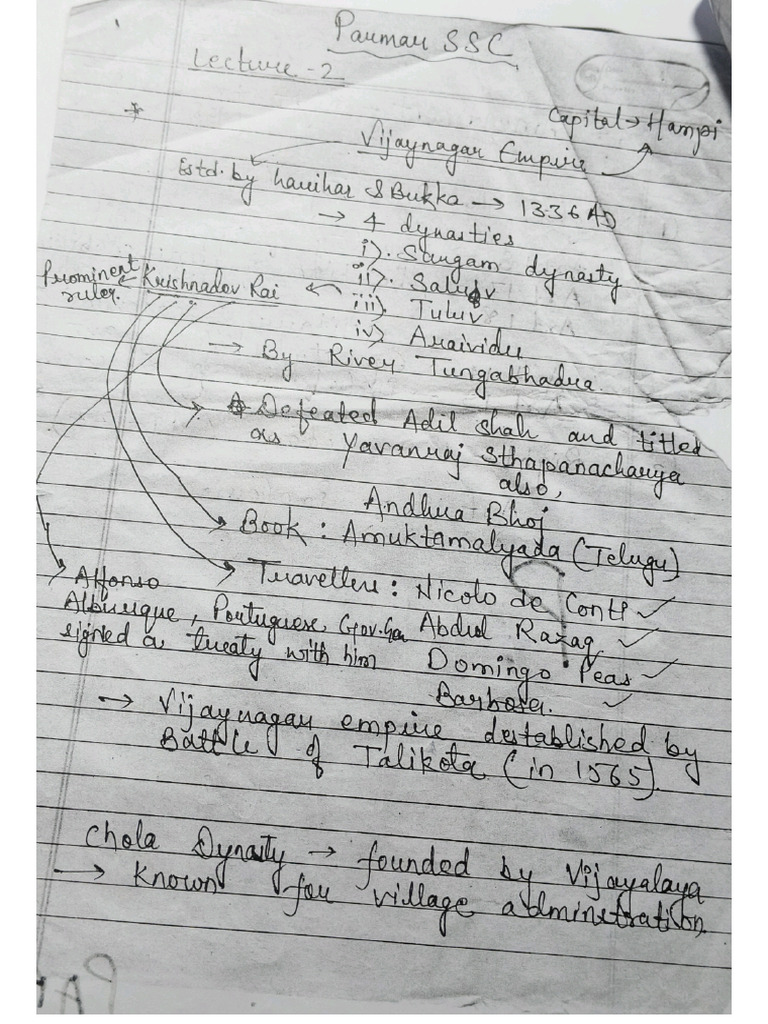 Parmar SSC
Lecture-2
Capital → Hampi
Vijaynagar Empire
Estd. by harihar & Bukka → 1336 AD
→ 4 dynasties
i). Sangam dynasty
ii). Saluv
Prominent ruler. ← Krishnadev Rai ← iii). Tuluv
iv) Araividu
→ By River Tungabhadra
Defeated Adil shah and titled
as Yavanraj Sthapanacharya
also,
Andhra Bhoj
Book : Amuktamalyada (Telugu)
Travellers : Nicolo de Conti ✓
Abdul Razaq ✓
Domingo Peas ✓
Barbosa. ✓
Alfonso
Alburque, Portuguese Gov. Gen
signed a treaty with him
→ Vijaynagar empire destablished by
Battle of Talikota (in 1565).
Chola Dynasty → founded by Vijayalaya
→ known for village adminitration.